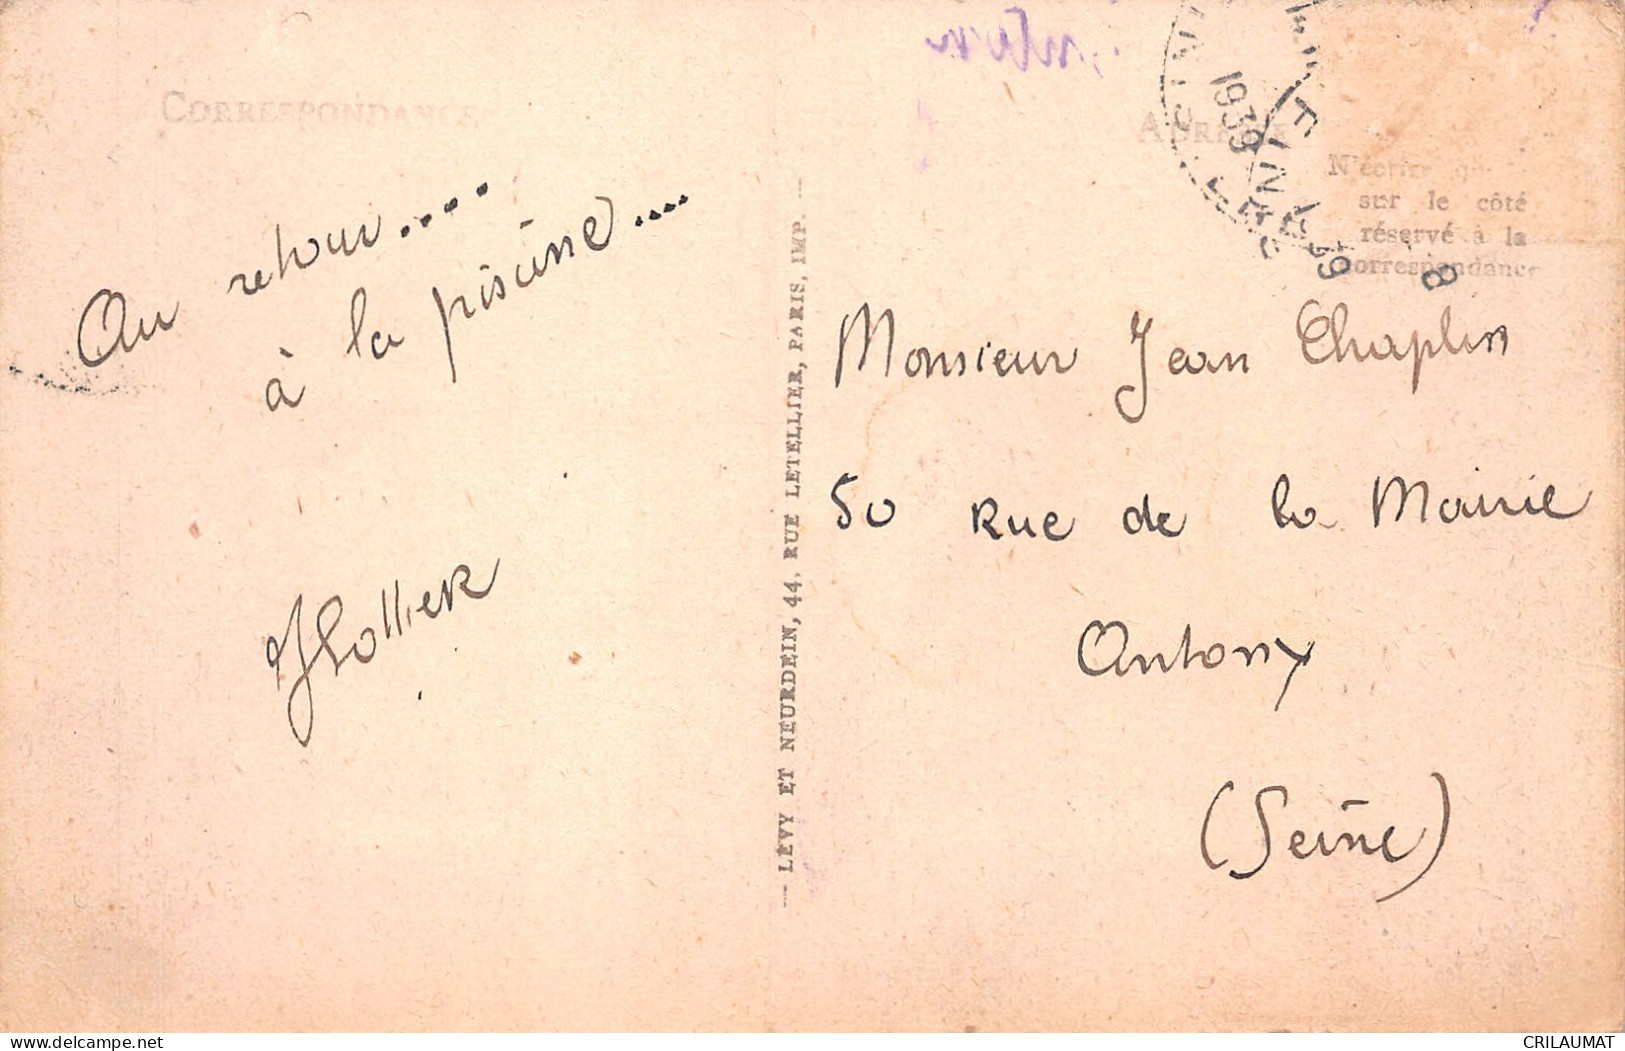 CORRESPONDANCE
Au retour....
à la piscine....
JHollier
LÉVY ET NEURDEIN, 44, RUE LETELLIER, PARIS, IMP.
ADRESSE
1939
N'écrire que
sur le côté
réservé à la
correspondance
Monsieur Jean Chaplin
50 Rue de la Mairie
Antony
(Seine)
delcampe.net
CRILAUMAT